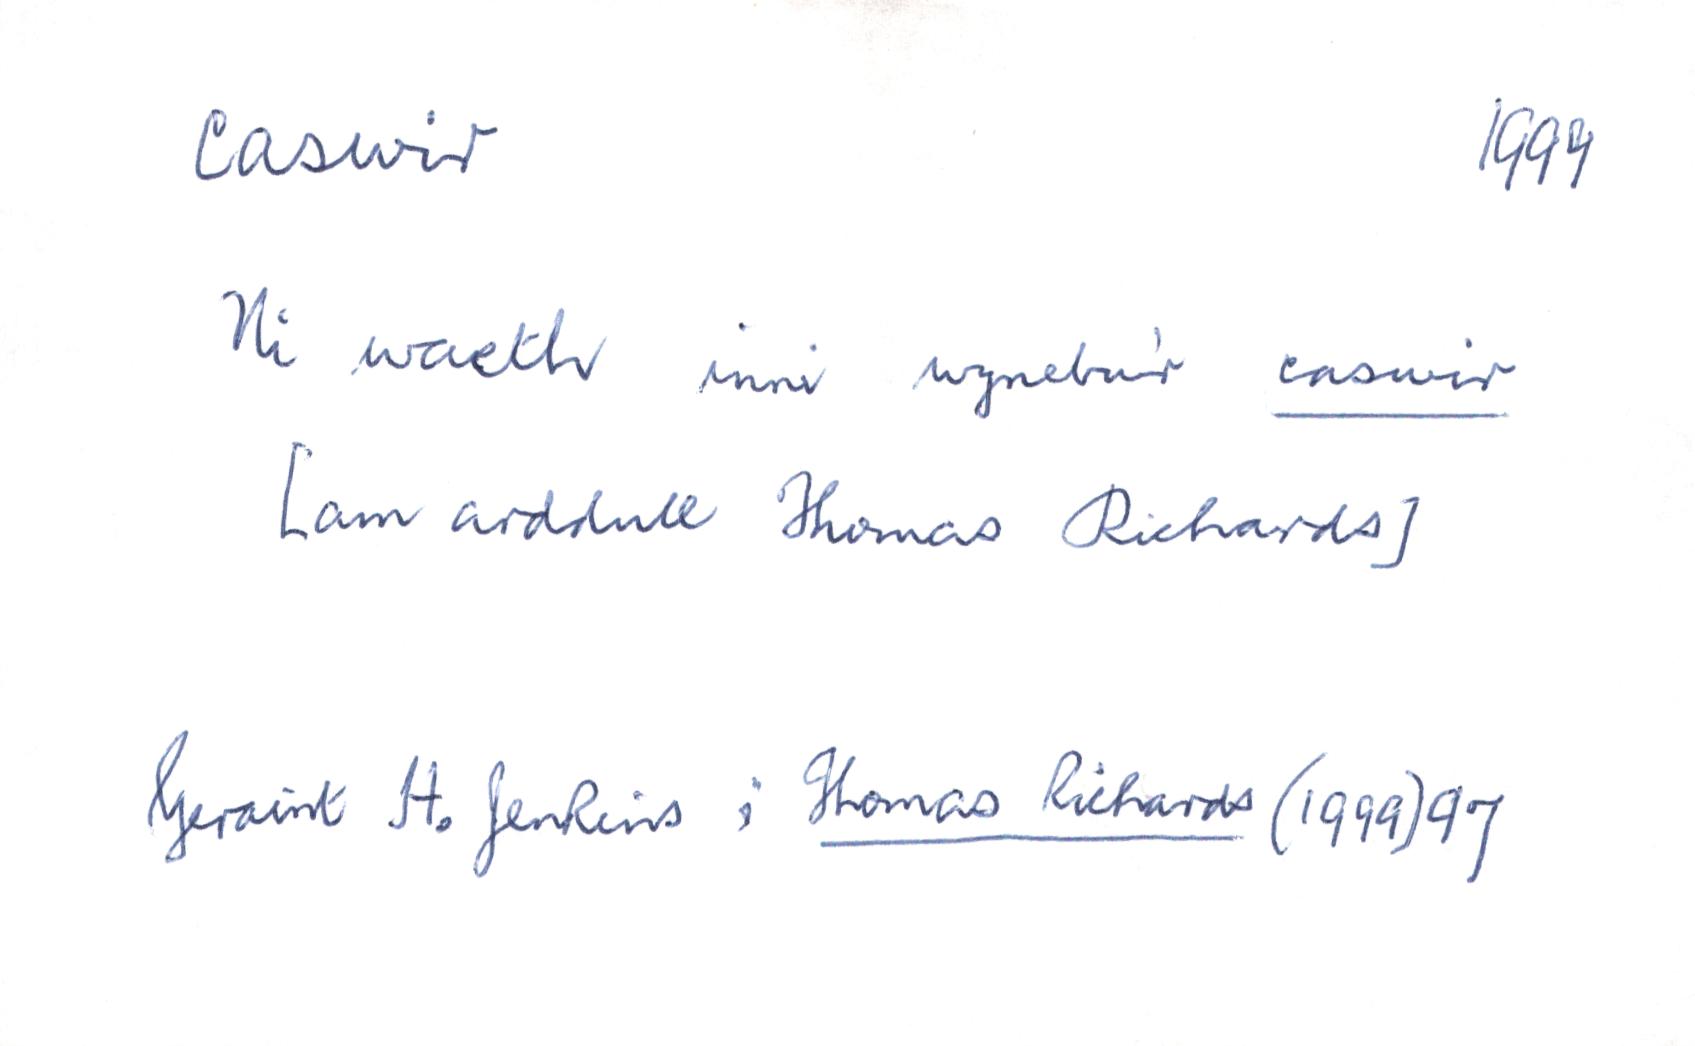 Caswir 1999
Ni waeth inni wynebu'r caswir
[am arddull Thomas Richards]
Geraint H. Jenkins ; Thomas Richards (1999) 97